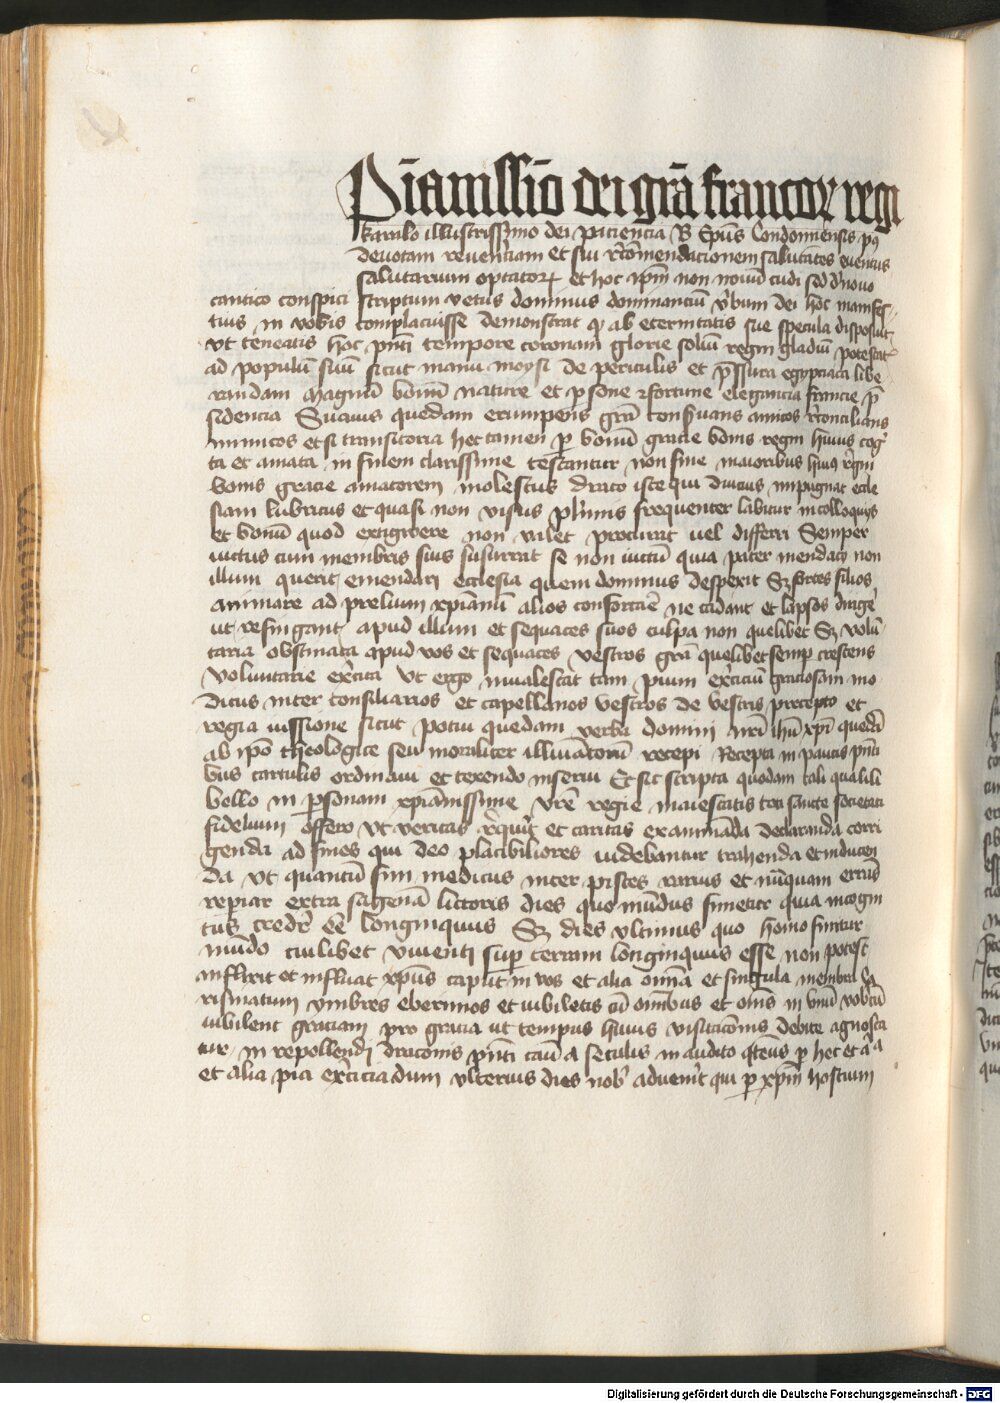 Pianissīo dei grā francoꝝ regi
karulo illustrissimo dei paciencia B Epūs Condomiensis
deuotam reuerētiam et sui recōmendacionem salutates euentus
salutarium optatoꝝ et hoc non nouū cudi sed nouo
cantico conspici scriptum vetus dominus dominanciū vbum dei hoc manifes-
tius in vobis complacuisse demonstrat ab eternitatis sue specula disposuit
vt teneatis hoc pn̄ti tempore coronam glorie soliū regni gladiū potestat
ad populū suū sicut manu moysi de periculis et pssura egypciaca libe
randam Magnū bonū nature et psone fortune elegancia francie p
sidencia Suauis quedam erumpens grā conseruans amicos reconcilians
inimicos etsi transitoria hec tamen p bonū gracie bonis regni huius cog
ta et amata in finem clarissime testantur non sine maioribus huius regni
bonis gracie amatorem molestus draco iste qui diucius impugnat eccle
siam lubricus et quasi non visus plimis frequenter labitur in colloquijs
et bonū quod extigwere non valet procurat uel differri Semper
victus cum membris suis susurrat se non victū quia pater mendacij non
illum querit emendari ecclesia quem dominus despexit Sꝫ fortes filios
animare ad prelium xpianū alios confortare ne cadant et lapsos dirige
ut resurgant apud illum et sequaces suos culpa non quelibet Sꝫ volū
taria obstinata apud vos et sequaces vestros grā quelibet semp crescens
voluntarie excita Vt ergo inualescat tam pium exciciū graciosam mo
dicus inter consiliarios et capellanos vestros de vestris precepto et
regia iussione sicut potui quedam verba domini nrī ihū xpī quedā
ab ipō theologice seu moraliter illuiatorū recepi Recepta in paucis pn̄ti
bus cartulis ordinaui et texendo inserui Et sic scripta quodam tali qualili
bello in psonam xpianissime vrē regie maiestatis toti sancte societati
fidelium offero vt veritas et caritas examināda declaranda corri
genda ad fines qui deo placibiliores uidebantur trahenda et inducen
da vt quantū sim medicus inter pisces varius et nūquam
repiar extra sagenā lictoris dies quo mūdus finietur quia incogni
tus credr̄ eē longinquus Sꝫ dies vltimus quo homo finitur
mūdo cuilibet viuenti sup terram longinquus esse non potest
influxit et influat xpūs caput in vos et alia omīa et singula membra ca
rismatum ymbres eberimos et iubiletis cū omībus et oms in vnū vobcū
iubilent graciam pro gracia ut tempus huius visitacōnis debite agnosca
tur in repollendi draconis pn̄ti a seculis in audito p hec et
et alia pia exercicia dum vlterius dies nob aduenit qui p xpm hostium
Digitalisierung gefördert durch die Deutsche Forschungsgemeinschaft - DFG